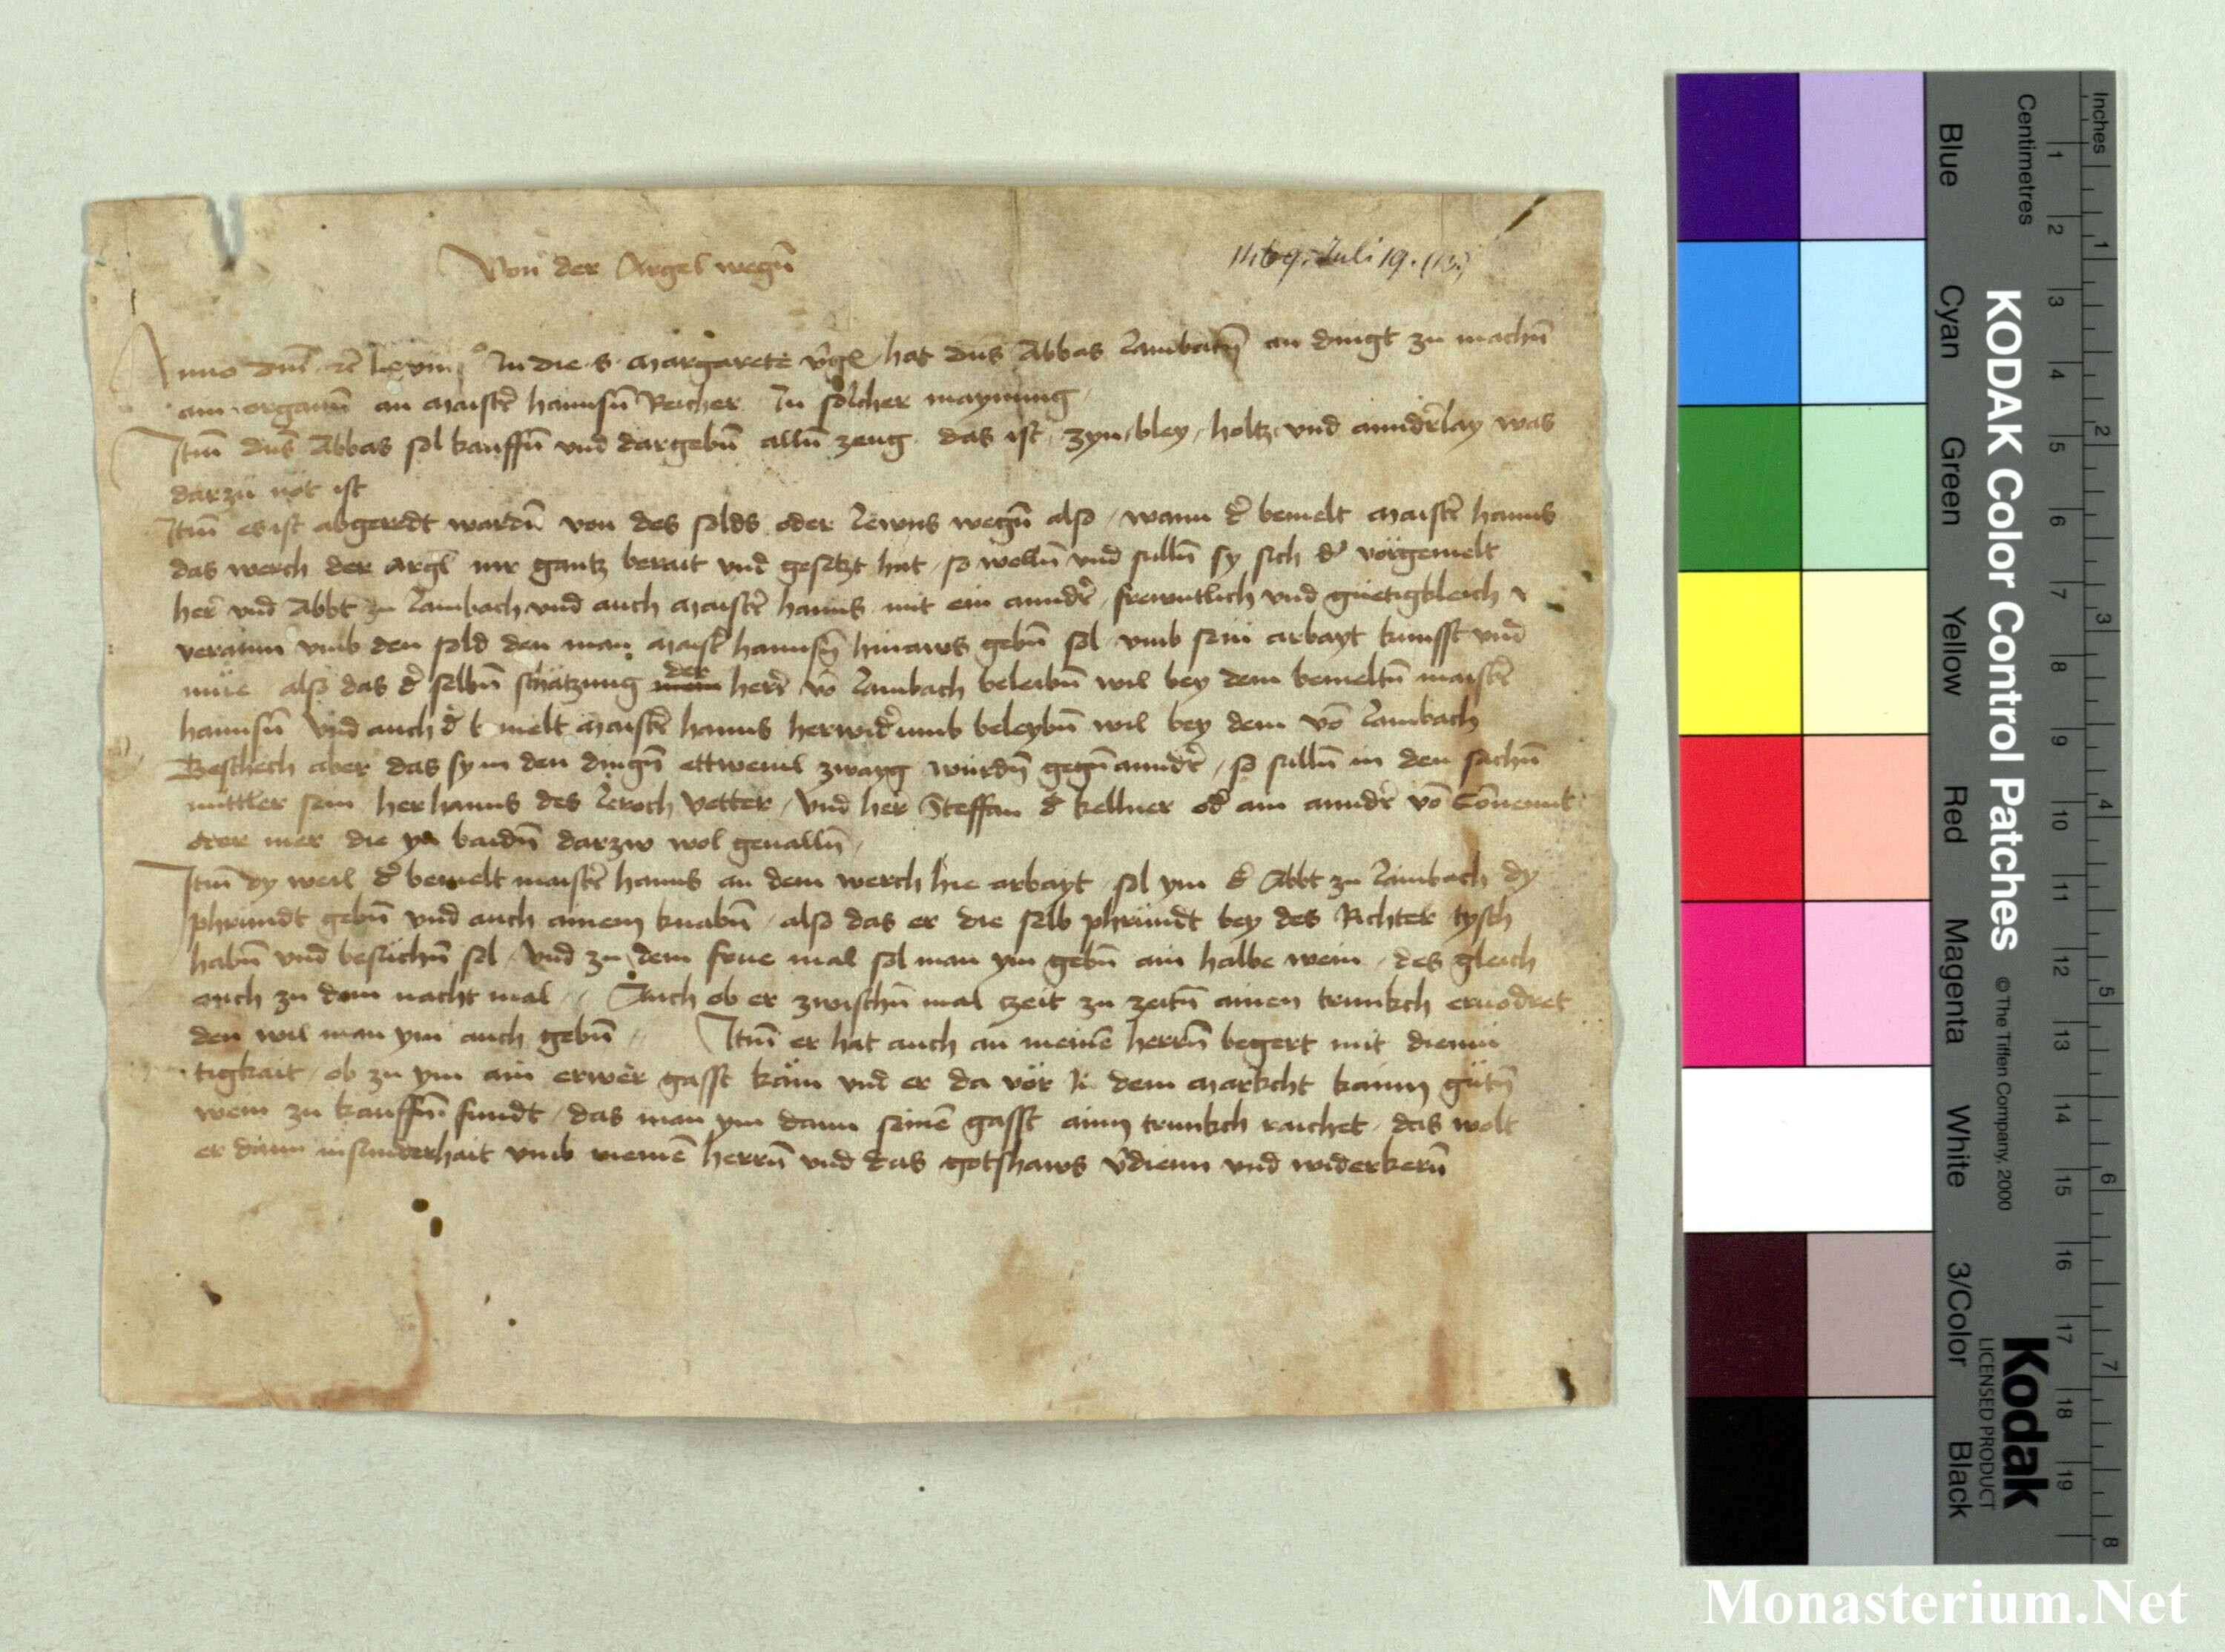 Von der Orgel wegn̄
1469. Juli 19. (13.)
Anno dni̅ ꝛc̄ lxviiii⁰ In die s. Margarete v̄gī͡s hat dn̄s Abbas Lambacen̄ an dingt zu machn̄
ain organn̄ an Maistr̄ Hannsn̄ Reicher In sölcher maynung
Itm̄ dn̄s Abbas sol kauffn̄ vnd dargebn̄ alln̄ zeug das ist, zyn, bley, holtz vnd anndr̄lay was
darzu nöt ist
Itm̄ es ist abgeredt wordn̄ von des solds oder lewns wegn̄ also, wann d̄ bemelt Maistr̄ Hanns
das werch der Orgl nw gantz berait vnd gesetzt hat, so welln̄ vnd sulln̄ sy sich d̄ vörgemelt
her̄ vnd Abbt zu Lambach vnd auch Maistr̄ Hanns mit ein anndr̄, frewntlich vnd güetigkleich v
veraïnn vmb den sold den man Maistr̄ Hannsn̄ hinaws gebn̄ sol vmb sein arbayt kunsst vnd
müe also das d̄ selbn̄ schätzung mein der herr̄ vō Lambach beleibn̄ wil bey dem bemeltn̄ maistr̄
hannsn̄ Vnd auch d̄ b melt Maistr̄ hanns herwid̄umb beleybn̄ wil bey dem vō Lambach
Beschech aber das sy in den dingn̄ ettweuil zwayg würdn̄ gegn̄anndr̄, so sulln̄ in den sachn̄
mittler sein her hanns des Leroch vetter, Vnd her Steffan d̄ kellner od̄ ain anndr̄ vō Cōnuennt
oder mer die yn baidn̄ darzw wol geualln̄,
Itm̄ dy weil d̄ bemelt maistr̄ hanns an dem werch hie arbayt, sol ym d̄ Abbt zu Lambach dy
phründt gebn̄ vnd auch ainem knabn̄, also das er die selb phründt bey des Richter tysch
habn̄ vnd besüchn̄ sol, Vnd zu dem frue mal sol man ym gebn̄ ain halbe wein, des gleich
auch zu dem nacht mal, Auch ob er zwischn̄ mal zeit zu zeitn̄ ainen trunkch eruodret
den wil man ym auch gebn̄ Itm̄ er hat auch an meinē herrn̄ begert mit diemü
tigkait, ob zu ym ain erwer gasst käm vnd er da vör In dem Markcht kainn gütn̄
wein zu kauffn̄ fundt, das man ym dann seinē gasst ainn trunkch raichet, das wolt
er dann insunderhait vmb meinē herrn̄ vnd das gotshaws v̄dienn vnd widerkern̄
KODAK Color Control Patches
© The Tiffen Company, 2000
Kodak
LICENSED PRODUCT
Inches
1 2 3 4 5 6 7 8
Centimetres
1 2 3 4 5 6 7 8 9 10 11 12 13 14 15 16 17 18 19
Blue
Cyan
Green
Yellow
Red
Magenta
White
3/Color
Black
Monasterium.Net